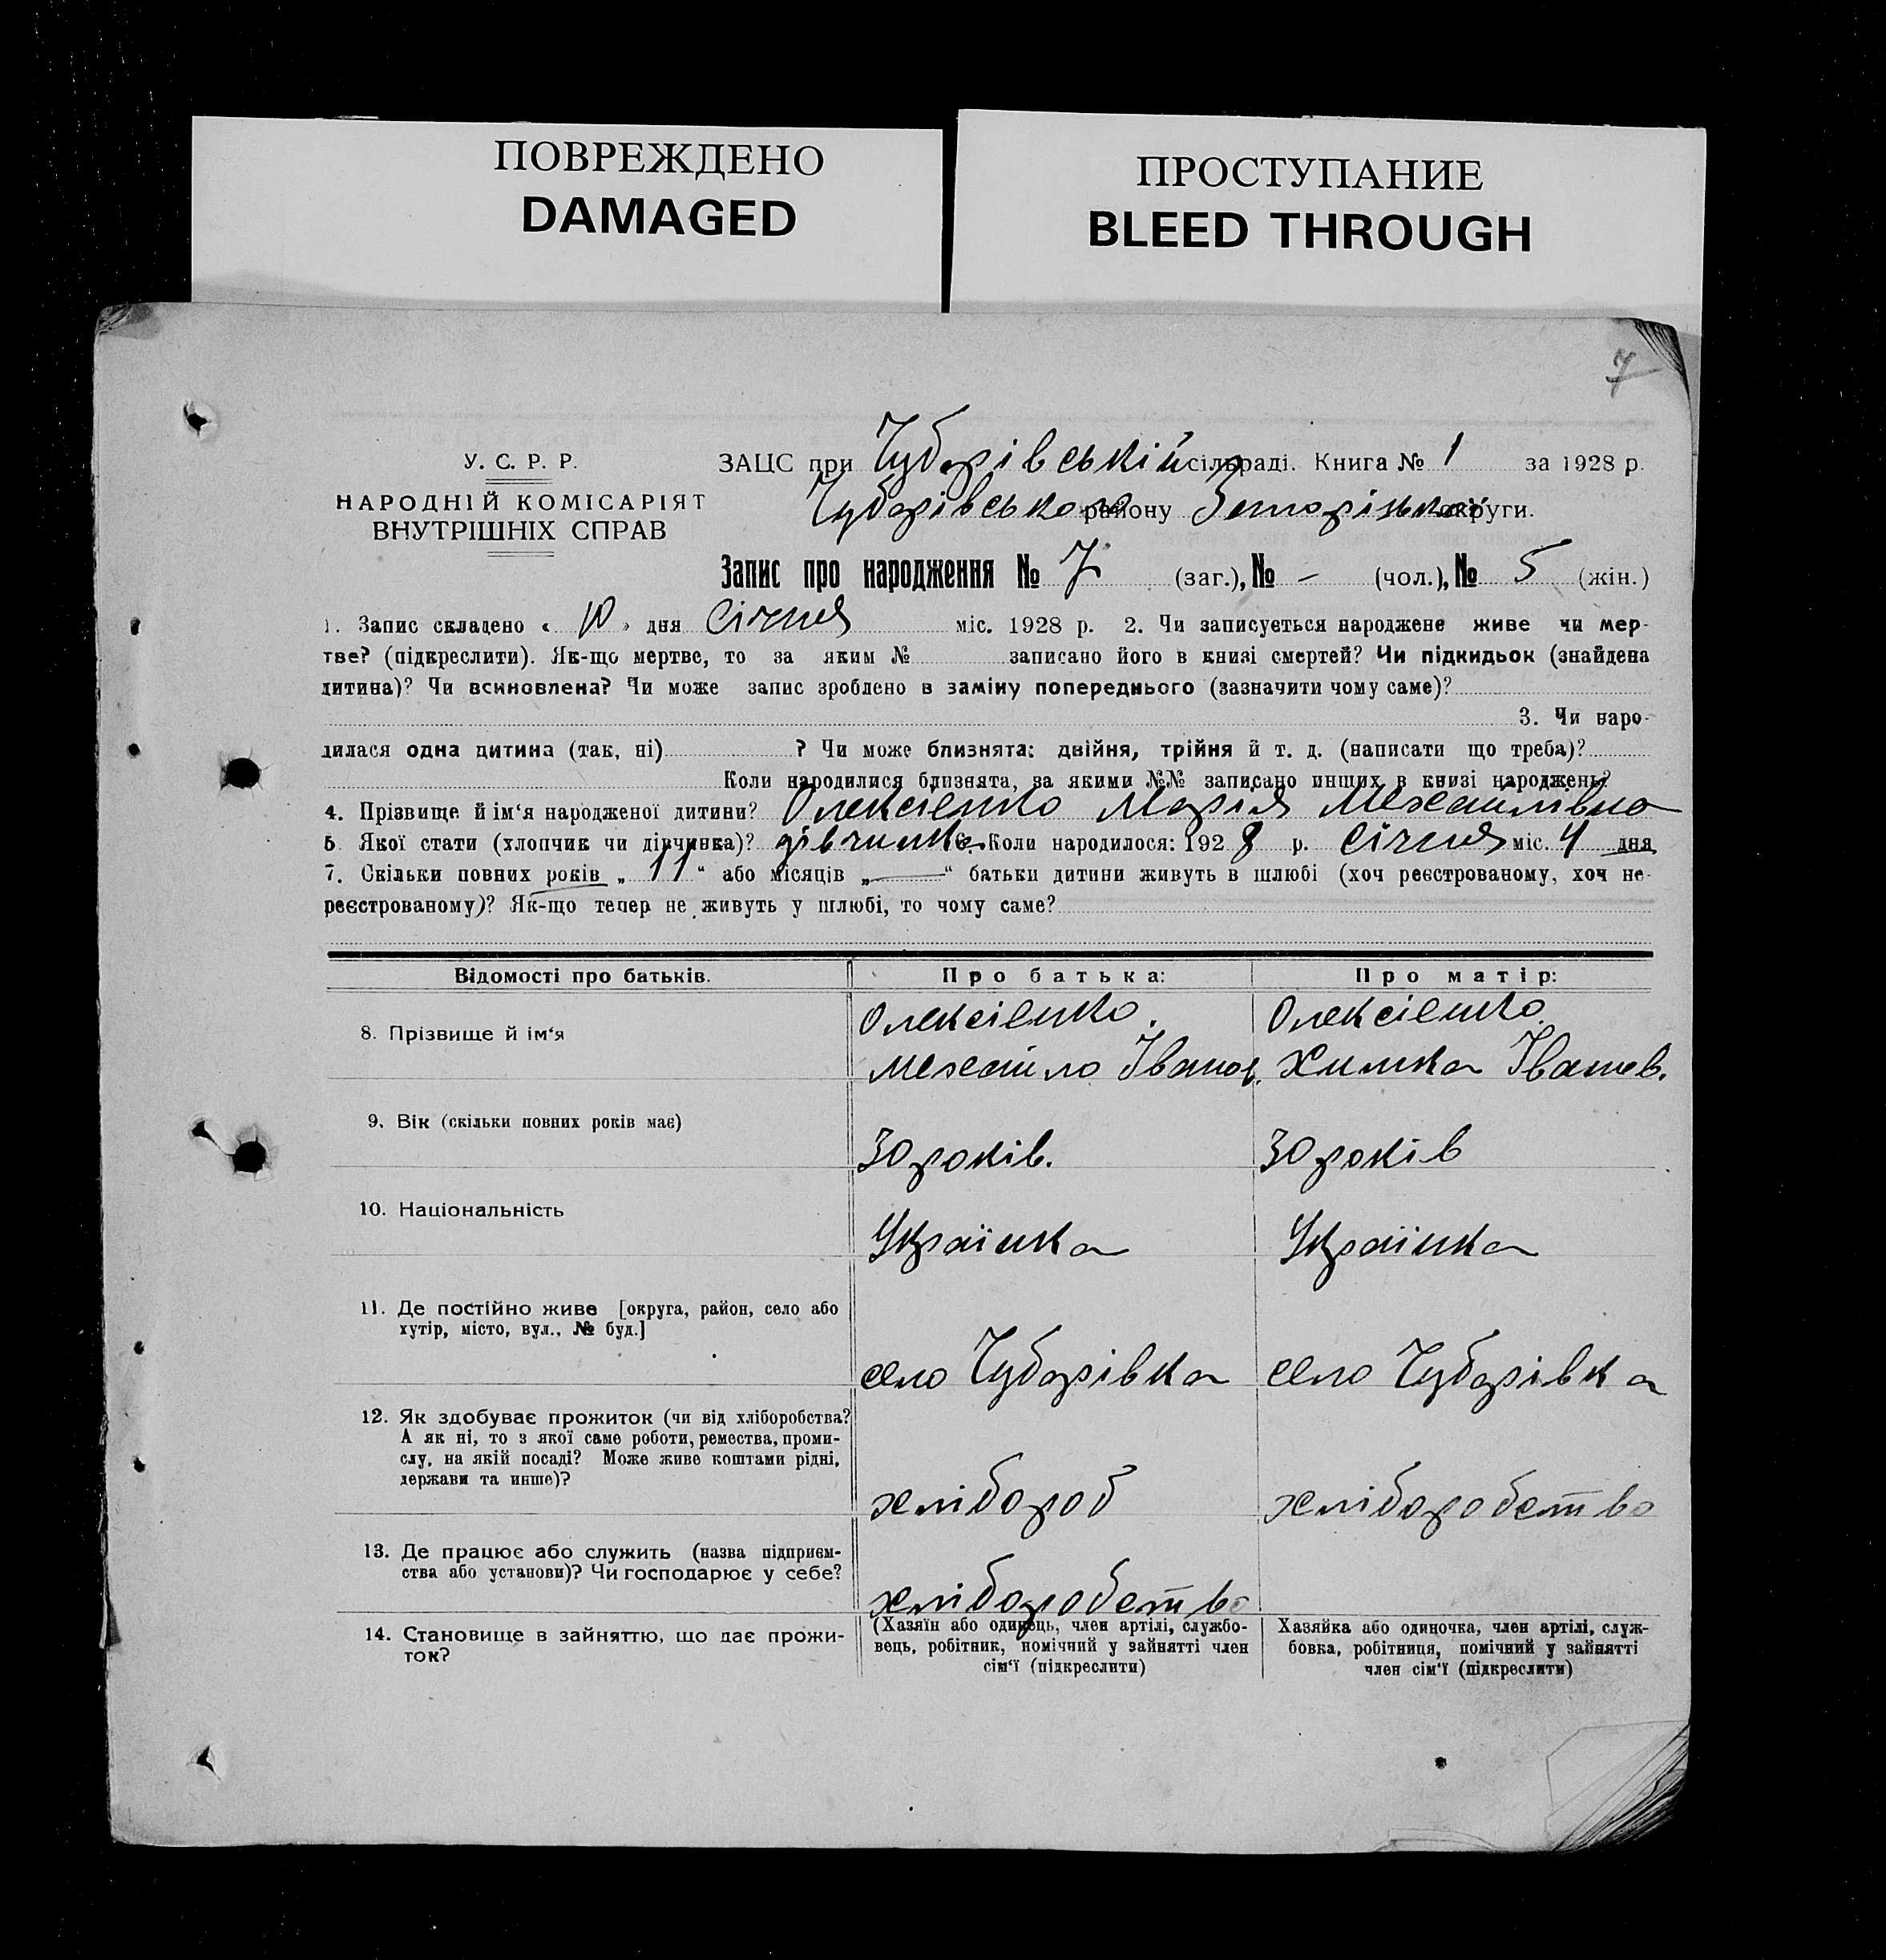 ПОВРЕЖДЕНО
DAMAGED
ПРОСТУПАНИЕ
BLEED THROUGH
7
У. С. Р. Р.
НАРОДНІЙ КОМІСАРІЯТ
ВНУТРІШНІХ СПРАВ
ЗАЦС при Чубарівській сільраді. Книга № 1 за 1928 р.
Чубарівського району Запорізької округи.
Запис про народження № 7 (заг.), № – (чол.), № 5 (жін.)
1. Запис складено « 10 » дня Січня міс. 1928 р. 2. Чи записується народжене живе чи мер-
тве? (підкреслити). Як-що мертве, то за яким № записано його в книзі смертей? Чи підкидьок (знайдена
дитина)? Чи всиновлена? Чи може запис зроблено в заміну попереднього (зазначити чому саме)?
3. Чи наро-
дилася одна дитина (так, ні) ? Чи може близнята: двійня, трійня й т. д. (написати що треба)?
Коли народилися близнята, за якими №№ записано инших в книзі народжень?
4. Прізвище й ім‘я народженої дитини? Олексієнко Марія Михайлівна
5 Якої стати (хлопчик чи дівчинка)? дівчинка 6. Коли народилося: 1928 р. Січня міс. 4 дня
7. Скільки повних років „ 11 “ або місяців „ — “ батьки дитини живуть в шлюбі (хоч реєстрованому, хоч не-
реєстрованому)? Як-що тепер не живуть у шлюбі, то чому саме?
Відомості про батьків. Про батька: Про матір:
8. Прізвище й ім‘я
Олексієнко. Олексієнко
Михайло Іванов. Химка Іванов.
9. Вік (скільки повних років має)
30 років. 30 років
10. Національність
Українка Українка
11. Де постійно живе [округа, район, село або
хутір, місто, вул., № буд.]
село Чубарівка село Чубарівка
12. Як здобуває прожиток (чи від хліборобства?
А як ні, то з якої саме роботи, ремества, проми-
слу, на якій посаді? Може живе коштами рідні,
держави та инше)?
хлібороб хліборобство
13. Де працює або служить (назва підприєм-
ства або установи)? Чи господарює у себе?
хліборобство
14. Становище в зайняттю, що дає прожи-
ток?
(Хазяїн або одинець, член артілі, службо-
вець, робітник, помічний у зайнятті член
сім‘ї (підкреслити)
Хазяйка або одиночка, член артілі, служ-
бовка, робітниця, помічний у зайнятті
член сім‘ї (підкреслити)